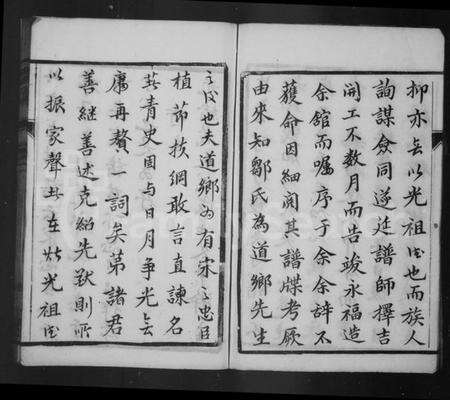 抑亦無以光祖德也而族人
詢謀僉同遂延譜師擇吉
開工不数月而告竣永福造
余館而嘱序于余余辞不
獲命因細閱其譜牒考厥
由來知鄒氏為道鄉先生
之後也夫道鄉為有宋之名臣
植節扶綱敢言直諫名
共青史固与日月争光無
庸再贅一詞矣苐諸君
善継善述克紹先猷則所
以振家聲者在此光祖德